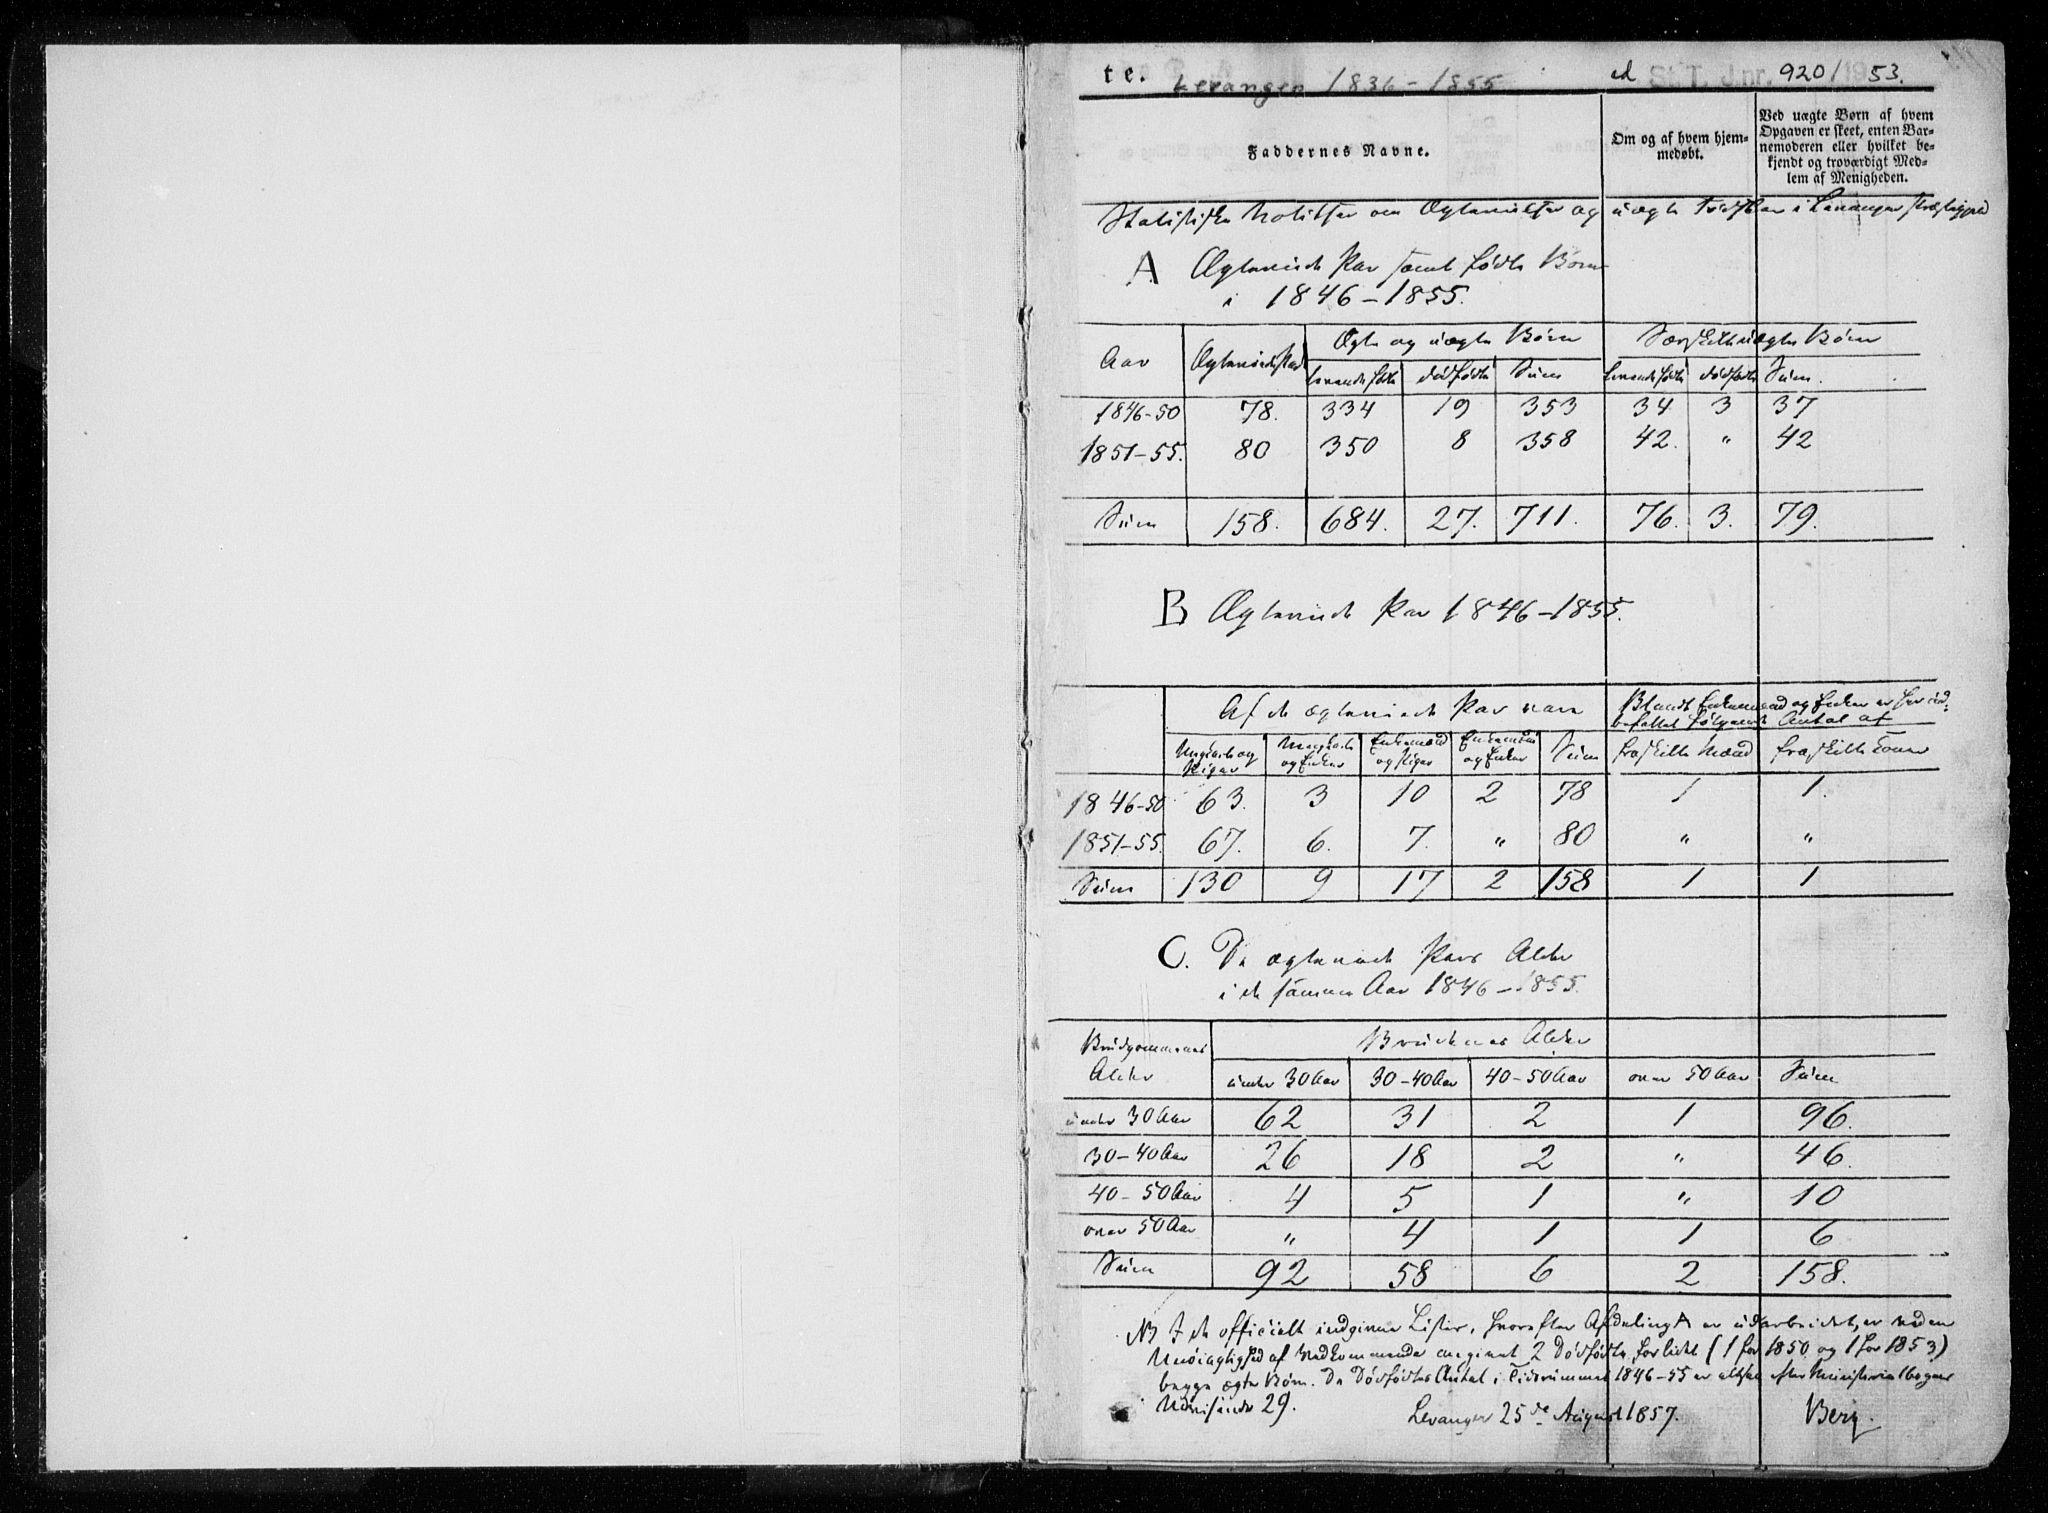 te. Levanger 1836-1855 ad St. T. J.nr. 920/1953.
Faddernes Navne.
Om og af hvem hjem-
medøbt.
Ved uægte Børn af hvem
Opgaven er skeet, enten Bar-
nemoderen eller hvilket be-
kjendt og troværdigt Med-
lem af Menigheden.
Statistiske Notitser om Ægtevielser og uægte Fødsler i Levanger Præstegjeld
A Ægteviede Par samt fødte Børn
i 1846-1855.
Aar Ægteviede Par Ægte og uægte Børn Særskilt uægte Børn
levendefødte dødfødte Sum levendefødte dødfødte Sum.
1846-50 78. 334 19 353 34 3 37
1851-55. 80 350 8 358 42. " 42
Sum 158. 684. 27. 711. 76. 3. 79.
B Ægteviede Par 1846-1855.
Af de ægteviede Par vare Blandt Enkemænd og Enker er her ind-
befattet følgende Antal af
Ungkarle og Piger Ungkarle og Enker Enkemænd og Piger Enkemænd og Enker Sum fraskilte Mænd fraskilte Koner
1846-50 63. 3 10 2 78 1 1.
1851-55. 67. 6. 7. " 80 " "
Sum 130 9 17 2 158 1 1
C. De ægteviede Pars Alder
i de samme Aar 1846-1855.
Brudgommenes Brudenes Alder
Alder under 30 Aar 30-40 Aar 40-50 Aar over 50 Aar Sum
under 30 Aar 62 31 2 1 96.
30-40 Aar 26 18 2 " 46.
40-50 Aar 4 5 1 " 10
over 50 Aar " 4 1 1 6
Sum 92 58 6 2 158.
NB I de officielt indgivne Lister, hvorefter Afdeling A er udarbeidet, er ved en
Unøiagtighed af Vedkommende angivet 2 Dødfødte for lidet (1 for 1850 og 1 for 1853)
begge ægte Børn. De Dødfødtes Antal i Tidsrummet 1846-55 er altsaa efter Ministerialbogens
Udvisende 29. Levanger 25de August 1857. Berg.